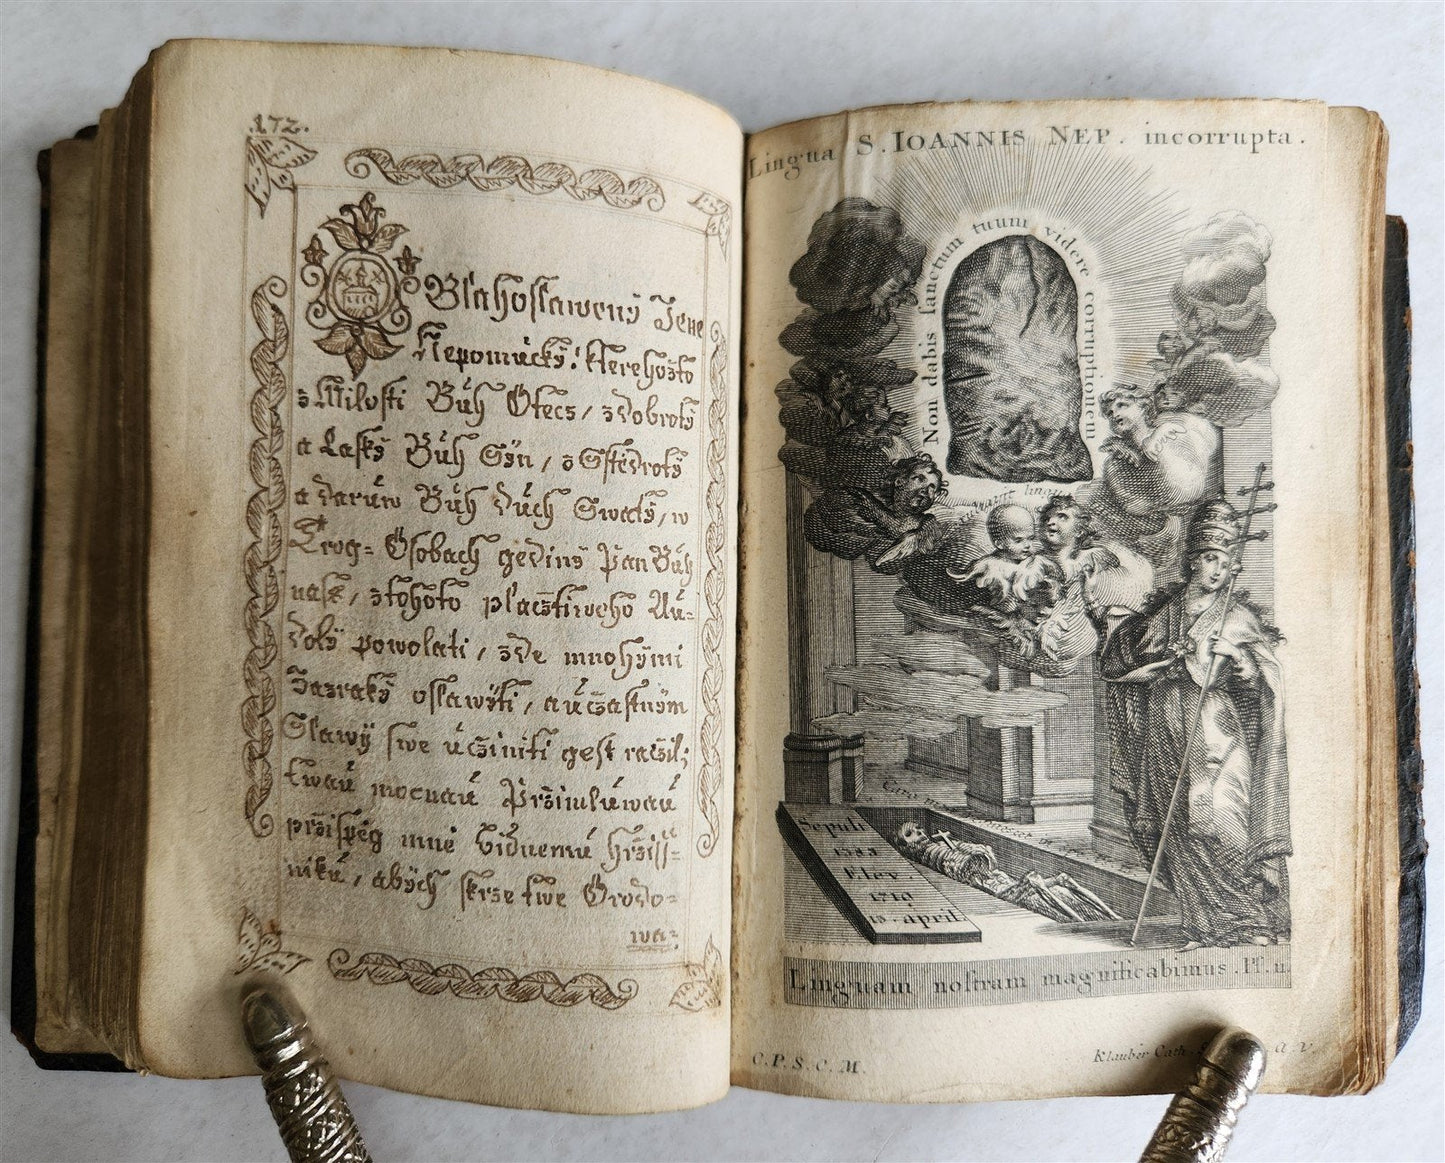 .172.
Blahoslaweny Jene
Nepomúcký! kterehožto
z Milosti Bůh Otecz/ z Dobroty
a Lasky Bůh Syn/ z Sstědroty
a darůw Bůh Dúch Swatý/ w
Trog= Osobach gediny Pan Bůh
nass/ z tohoto placztiweho Au=
doly powolati/ zde mnohými
Zazraky oslawiti/ a aúczastným
Slawy swe úcziniti gest raczil;
twaú mocnaú Przimlúwaú
przispěg mně bidnemú hrziss=
nikú, abych skrze twe Orodo=
wa=
Lingua S. IOANNIS NEP. incorrupta.
Non dabis sanctum tuum videre corruptionem
lingua
Caro
Sepulti
1383
Elev.
1719
15. april.
Linguam nostram magnificabimus. Ps. 11.
C.P.S.C.M.
Klauber Cath. a. V.